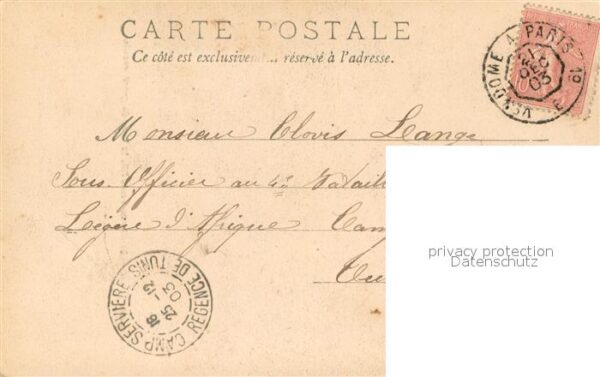 CARTE POSTALE
Ce côté est exclusivem... réservé à l'adresse.
VENDOME A PARIS 1º
DEC
03
Monsieur Clovis Lange
Sous Officier au 4e Bataill
Légère d'Afrique Cam
Tu
CAMP SERVIERE REGENCE DE TUNIS
18
25 -12
03
privacy protection
Datenschutz